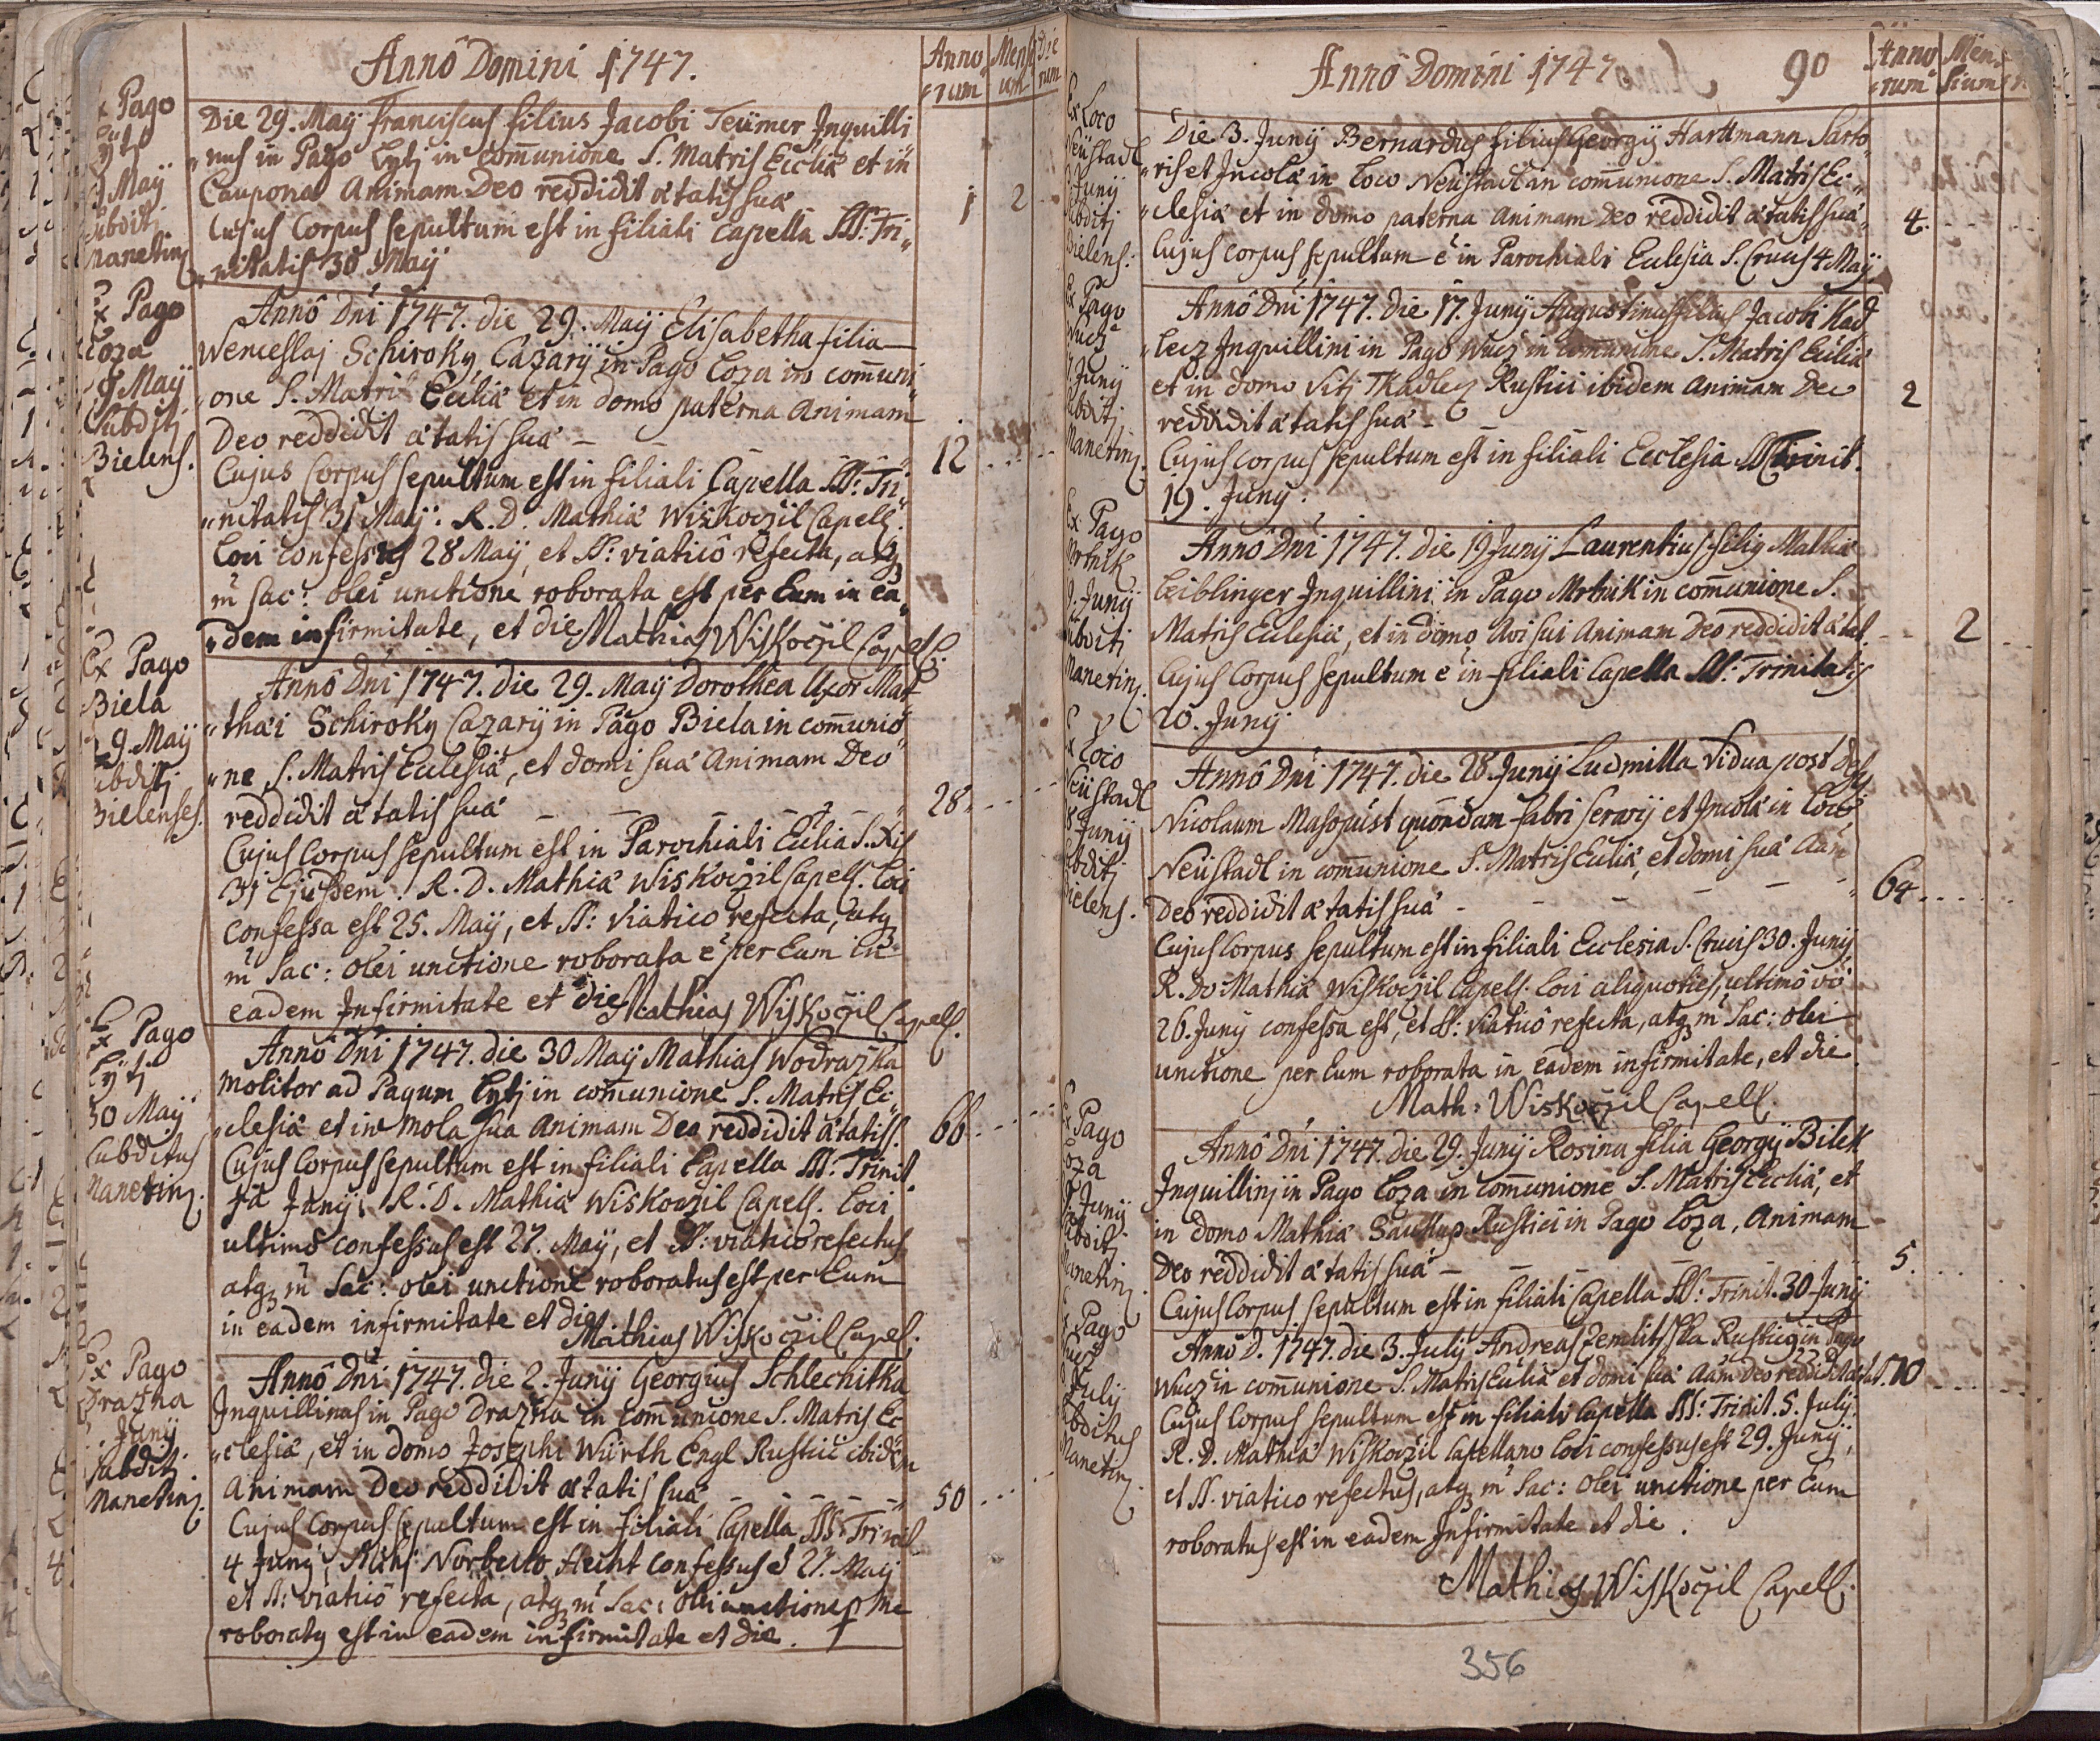 Annô Domini 1747.
Anno
rum
Mensi
um
Die
rum
Pago
Lytj
Maÿ
Subdit
Manetinȝ
Die 29. Maÿ Franciscus filius Jacobi Teümer Jnquilli
„nus in Pago Lytj in com̄unione S. Matris Eccliæ et in
Caupona Animam Deo reddidit ætatis suæ
1 2
Cujus Corpus sepultum est in filiali Capella SS: Tri„
„nitatis 30 Maÿ
Ex Pago
Loza
29 Maÿ
Subditj
Bielens.
Annô Dni 1747. die 29. Maÿ Elisabetha filia
Wenceslaj Schiroky, Cazarÿ in Pago Loza in com̄uni
„one S. Matris Eccliæ et in domo paterna Animam
Deo reddidit ætatis suæ
12
Cujus Corpus sepultum est in filiali Capella SS: Tri„
„nitatis 31 Maÿ. R. D. Mathiæ Wiskočzil Capell.
Loci confessus 28 Maÿ, et SS: viaticô refecta, atqȝ
m̄ Sac: olei unctione roborata est per Eum in eâ
„dem infirmitate, et die Mathias Wiskočzil Capell.
Ex Pago
Biela
29. Maÿ
Subditj
Bielenses.
Annô Dni 1747. die 29. Maÿ Dorothea Uxor Mat
„thæi Schiroky Cazarÿ in Pago Biela in com̄unio
„ne, S. Matris Ecclesiæ, et domi suæ Animam Deo
reddidit ætatis suæ
28
Cujus Corpus sepultum est in Parochiali Ecclia S. Xis
31 Ejusdem. R. D. Mathiæ Wiskočzil Capell. Loci
confessa est 25. Maÿ, et SS: Viatico refecta, atqȝ
m̄ Sac: olei unctione roborata ē per Eum in
eadem Jnfirmitate et die Mathias Wiskočzil Capell.
Ex Pago
Lytj
30 Maÿ
Subditus
Manetinȝ
Annô Dni 1747. die 30 Maÿ Mathias Wodrazka
Molitor ad Pagum Lytj in com̄unione S. Matris Ec„
„clesiæ et in mola sua Animam Deo reddidit ætatis s.
66
Cujus Corpus sepultum est in filiali Capella SS: Trinit.
1â Junÿ. R. D. Mathiæ Wiskočzil Capell. Loci
ultimô confessus est 27. Maÿ, et SS: viaticô refectus
atqȝ m̄ Sac: olei unctione roboratus est per Eum
in eadem infirmitate et die
Mathias Wiskočzil Capell.
Ex Pago
Drazna
Junÿ
Subdit
Manetinȝ
Annô Dni 1747. die 2. Junÿ Georgius Schlechitka
Jnquillinus in Pago Drazna in Com̄unione S. Matris Ec
„clesiæ, et in domo Josephi Würth Engl Rustici ibidem
Animam Deo reddidit ætatis suæ
50
Cujus Corpus sepultum est in filiali Capella SS: Trinit
4 Junÿ, Mihj Norberto Hecht confessus ē 27. Maÿ
et SS: viaticô refecta, atqȝ m̄ Sac: olei unctione p me
roboratȝ est in eadem infirmitate et die.
Annô Domini 1747
90
Anno
rum
Men
sium
Ex Loco
Neüstadl
Junÿ
Subditj
Bielens:
Die 3. Junÿ Bernardus filius Georgÿ Harttmann Sarto„
„ris et Jncolæ in Loco Neüstadl in com̄unione S. Matris Ec„
„clesiæ et in domo paterna Animam Deo reddidit ætatis suæ
4.
Cujus corpus sepultum ē in Parochiali Ecclesia S. Crucis 4 Maÿ
Ex Pago
Wucz
Junÿ
Subditj
Manetinȝ
Annô Dni 1747. Die 17. Junÿ Augustinus filius Jacobi Kad
„lecz Jnquillini in Pago Wucz in com̄unione S. Matris Eccliæ
et in domo Vitj Tkadlecz Rustici ibidem Animam Deo
reddidit ætatis suæ
2
Cujus corpus sepultum est in filiali Ecclesia SS Trinit.
19. Junÿ.
Ex Pago
Mrtnik
Junÿ
Subditj
Manetinȝ
Annô Dni 1747. die 19 Junÿ Laurentius filiȝ Mathiæ
Leiblinger Jnquillini in Pago Mrtnik in com̄unione S.
Matris Ecclesiæ, et in domo Avi sui Animam Deo reddidit ætat
2
Cujus Corpus sepultum ē in filiali Capella SS: Trinitatis
20. Junÿ
Ex Loco
Neüstadl
28 Junÿ
Subditj
Bielens.
Annô Dni 1747. die 28. Junÿ Ludmilla Vidua post def
Nicolaum Masopust quondam fabri Serarÿ et Jncolæ in Loco
Neüstadl in com̄unione S. Matris Eccliæ, et domi suæ Aam
Deo reddidit ætatis suæ
64
Cujus Corpus sepultum est in filiali Ecclesia S. Crucis 30. Junÿ
R. Do Mathiæ Wiskočzil Capell. Loci aliquoties, ultimô vô
26. Junÿ confessa est, et SS: Viaticô refecta, atqȝ m̄ Sac: olei
unctione per Eum roborata in eadem infirmitate, et die
Math: Wiskočzil Capell.
Ex Pago
Loza
Junÿ
Subditj
Manetinȝ
Annô Dni 1747. die 29. Junÿ Rosina filia Georgÿ Bilek
Jnquillinj in Pago Loza in com̄unione S. Matris Eccliæ, et
in domo Mathiæ Saukup Rustici in Pago Loza, Animam
Deo reddidit ætatis suæ
5.
Cujus Corpus sepultum est in filiali Capella SS: Trinit. 30 Junÿ
Ex Pago
Wucz
Julÿ
Subditus
Manetinȝ
Annô D. 1747. die 3. Julÿ Andreas Zemlitsska Rusticȝ in Pago
Wucz in com̄unione S. Matris Eccliæ et domi suæ Aam Deo reddidit ætat. 70
Cujus Corpus sepultum est in filiali Capella SS: Trinit. 5. Julÿ.
R. D. Mathiæ Wiskočzil Capellano Loci confessus est 29. Junÿ,
et SS. viatico refectus, atqȝ m̄ Sac: olei unctione per Eum
roboratus est in eadem Jnfirmitate et die.
Mathias Wiskočzil Capell.
356